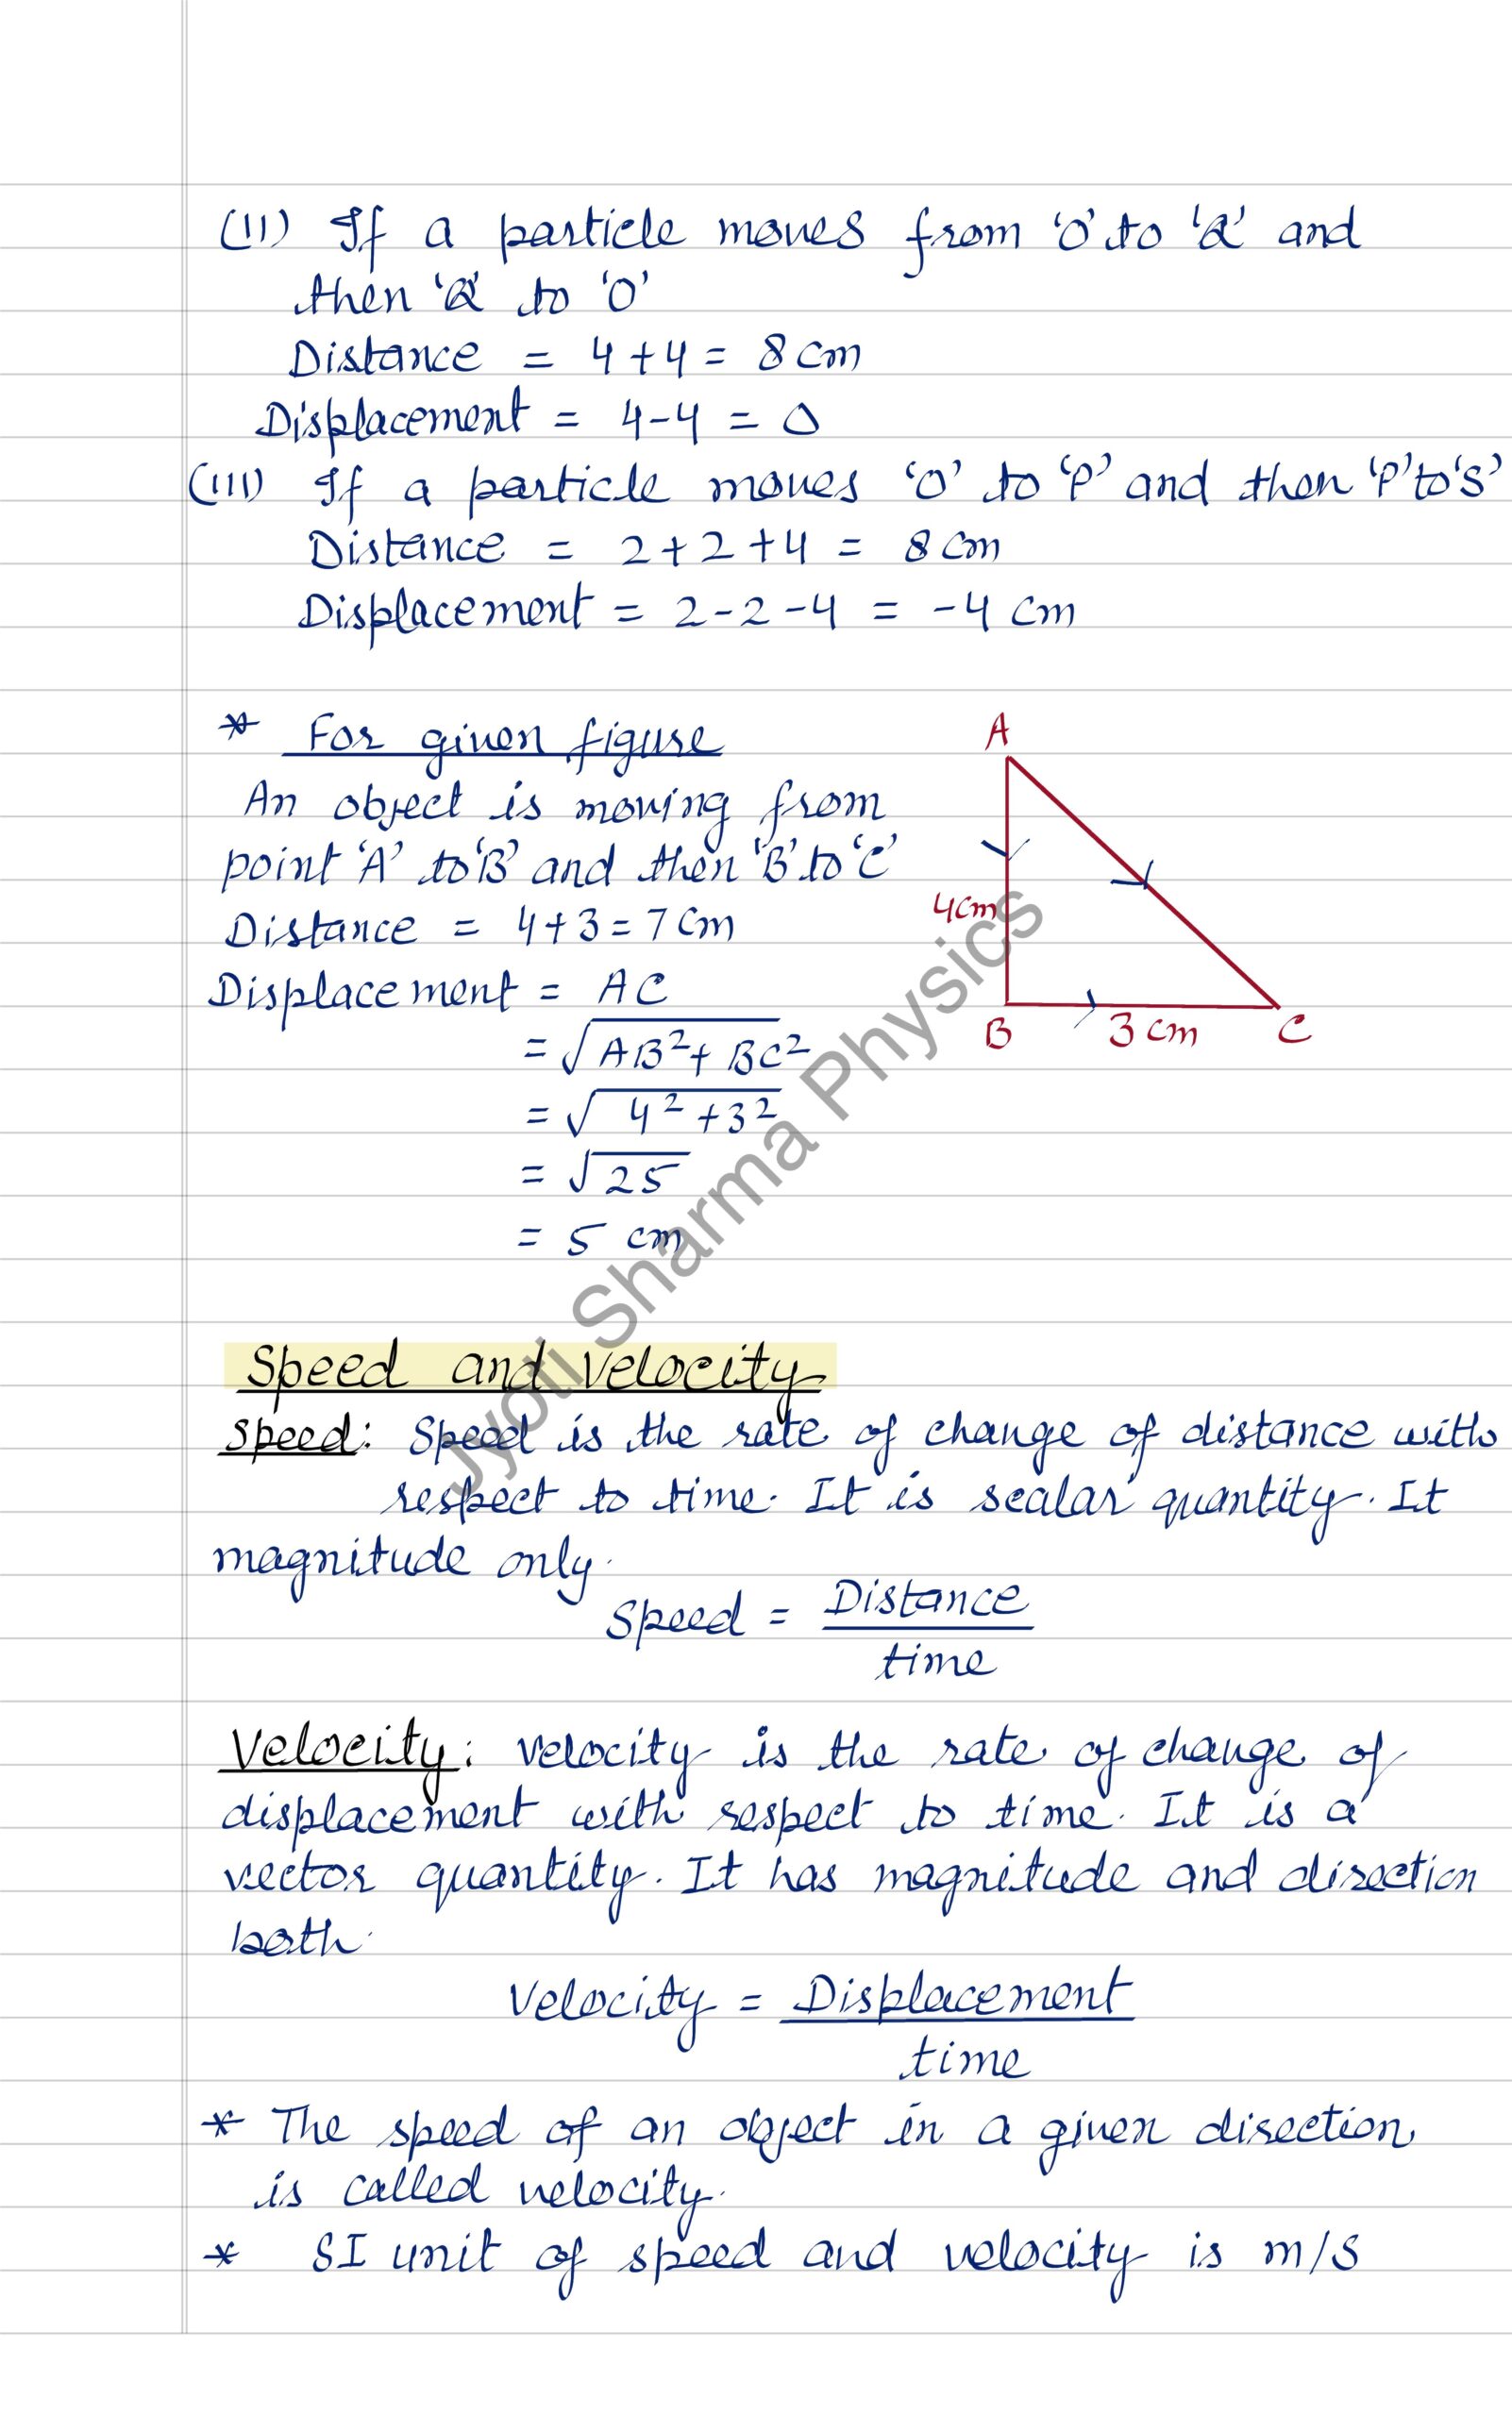 (II) If a particle moves from 'O' to 'Q' and
then 'Q' to 'O'
Distance = 4+4 = 8 cm
Displacement = 4-4 = 0
(III) If a particle moves 'O' to 'P' and then 'P' to 'S'
Distance = 2+2+4 = 8 cm
Displacement = 2-2-4 = -4 cm
* For given figure
An object is moving from
point 'A' to 'B' and then 'B' to 'C'
Distance = 4+3 = 7 cm
Displacement = AC
= √AB²+BC²
= √4²+3²
= √25
= 5 cm
A
4cm
B
3 cm
C
Speed and Velocity
Speed: Speed is the rate of change of distance with
respect to time. It is scalar quantity. It
magnitude only.
Speed = Distance
time
Velocity: Velocity is the rate of change of
displacement with respect to time. It is a
vector quantity. It has magnitude and direction
both.
Velocity = Displacement
time
* The speed of an object in a given direction
is called velocity.
* SI unit of speed and velocity is m/s
Jyoti Sharma Physics